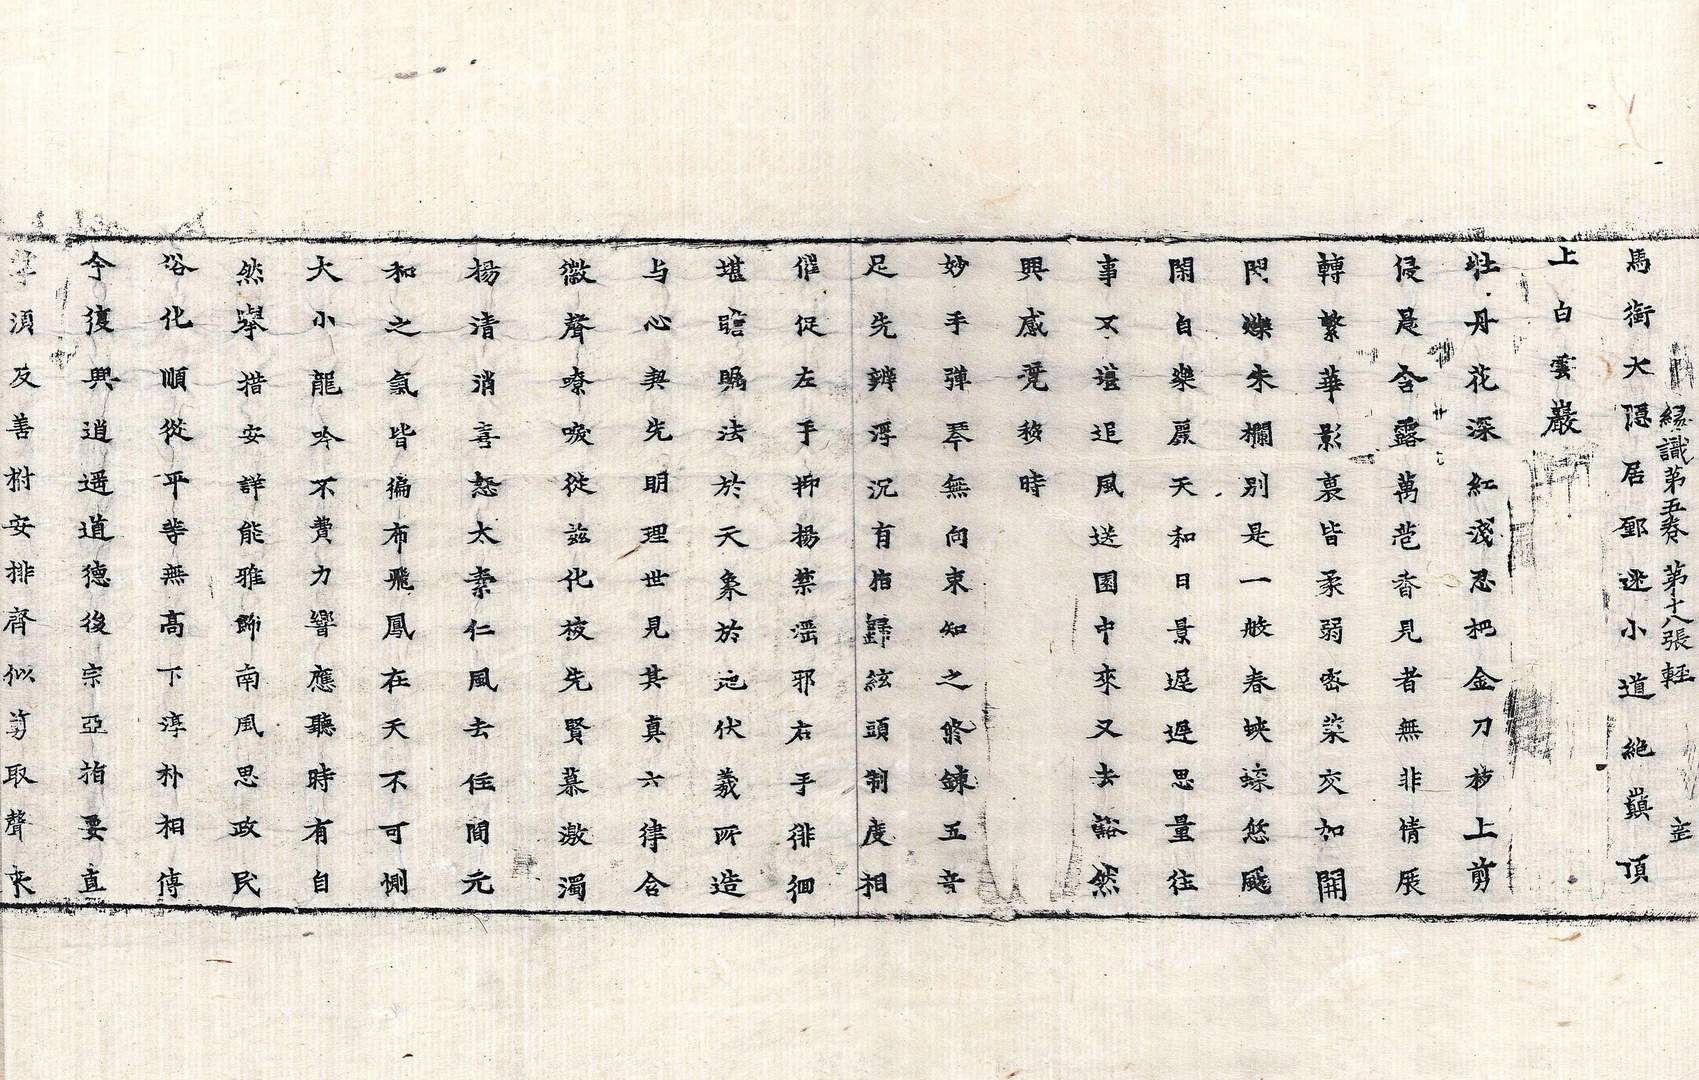 馬銜大隱居鄽迷小道絶巔頂
縁識第五卷 第十八張 輊
上白雲巖
牡丹花深紅淺忍把金刀移上剪
侵晨含露萬苞香見者無非情展
轉繁華影裏皆柔弱密葉交加開
閃爍朱欄別是一般春蛺蝶悠颺
閑自樂麗天和日景遲遲思量往
事不堪追風送園中來又去豁然
興感覺移時
妙手彈琴無向束知之修鍊五音
足先辨浮沉有指歸絃頭制度相
催促左手抑揚禁滛邪右手徘徊
堪瞻矚法於天象於地伏羲所造
与心契先明理世見其真六律合
徽聲嘹唳從兹化被先賢慕激濁
揚清消喜怒太素仁風去住間元
和之氣皆徧布飛鳳在天不可惻
大小龍吟不費力響應聽時有自
然舉措安詳能雅飾南風思政民
俗化順從平等無高下淳朴相傳
今復興逍遥道德後宗亞指要直
須反善樹安排齊似剪取聲来